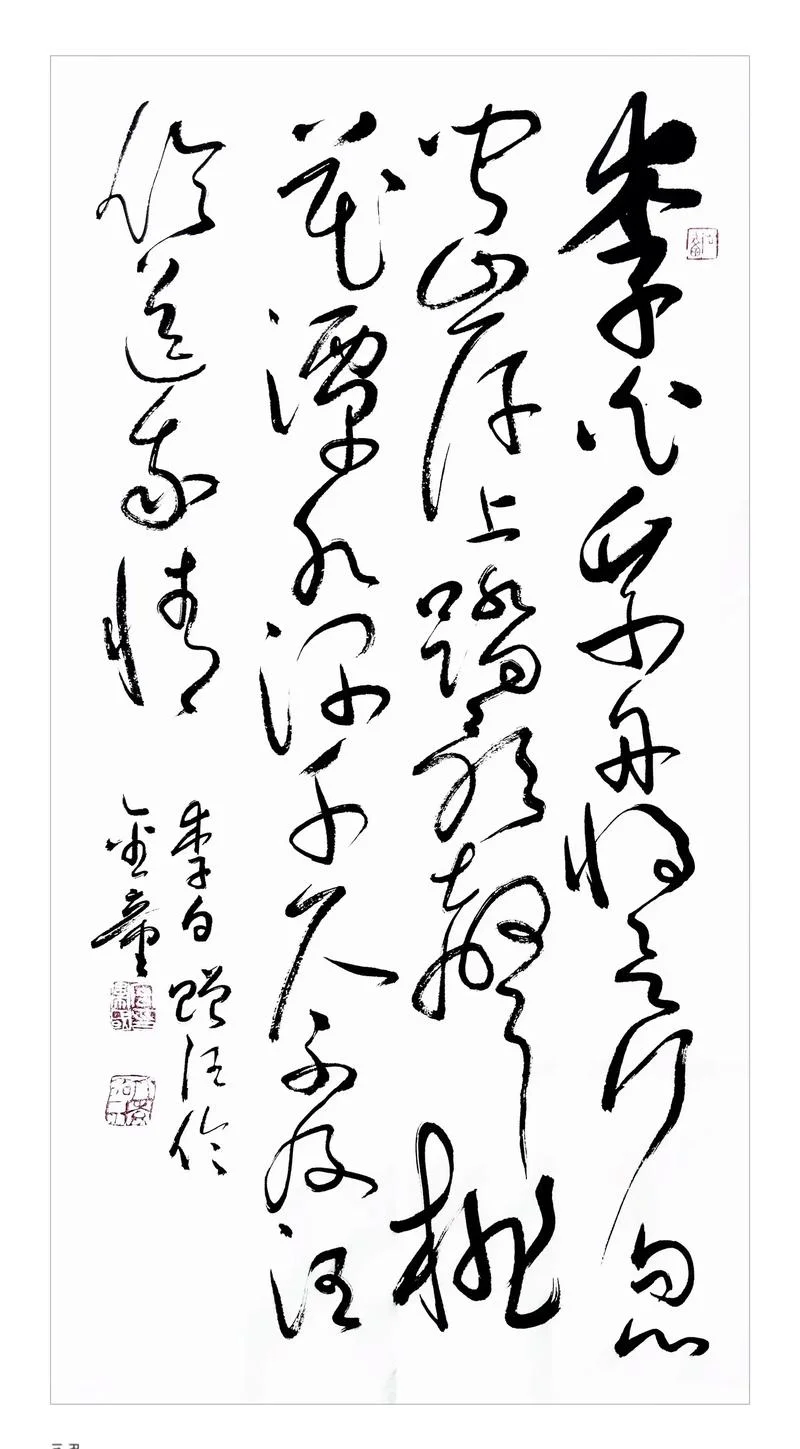 李白乘舟將欲行忽
聞岸上踏歌聲桃
花潭水深千尺不及汪
倫送我情
李白贈汪倫
金童